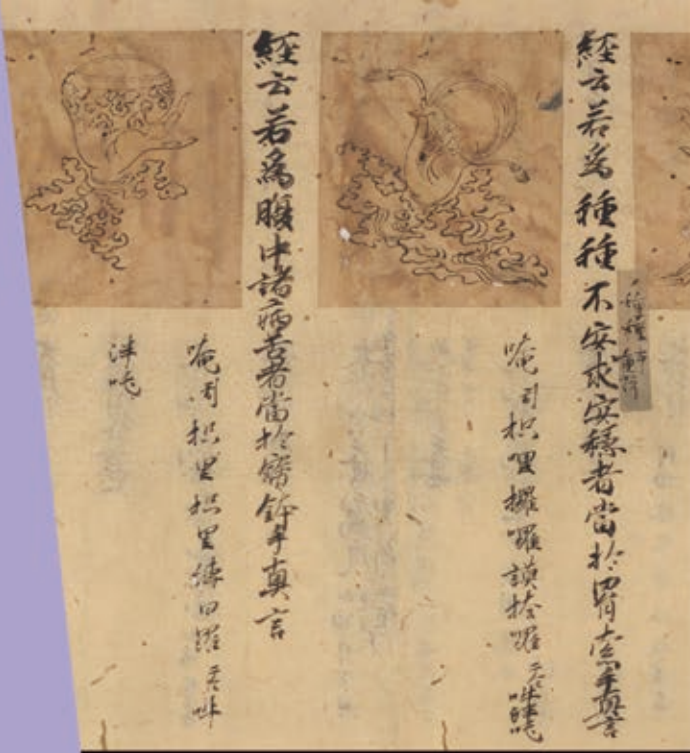 經云若為種種不安求安穩者當於罥索手真言
唵引枳哩攞囉謨捺囉二合吽泮吒
經云若為腹中諸病苦者當於寶鉢手真言
唵引枳里枳里縛日羅二合吽
泮吒